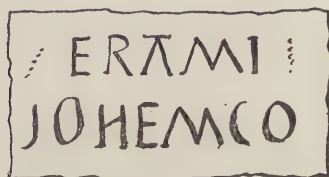 ERAMI
JOHEMCO